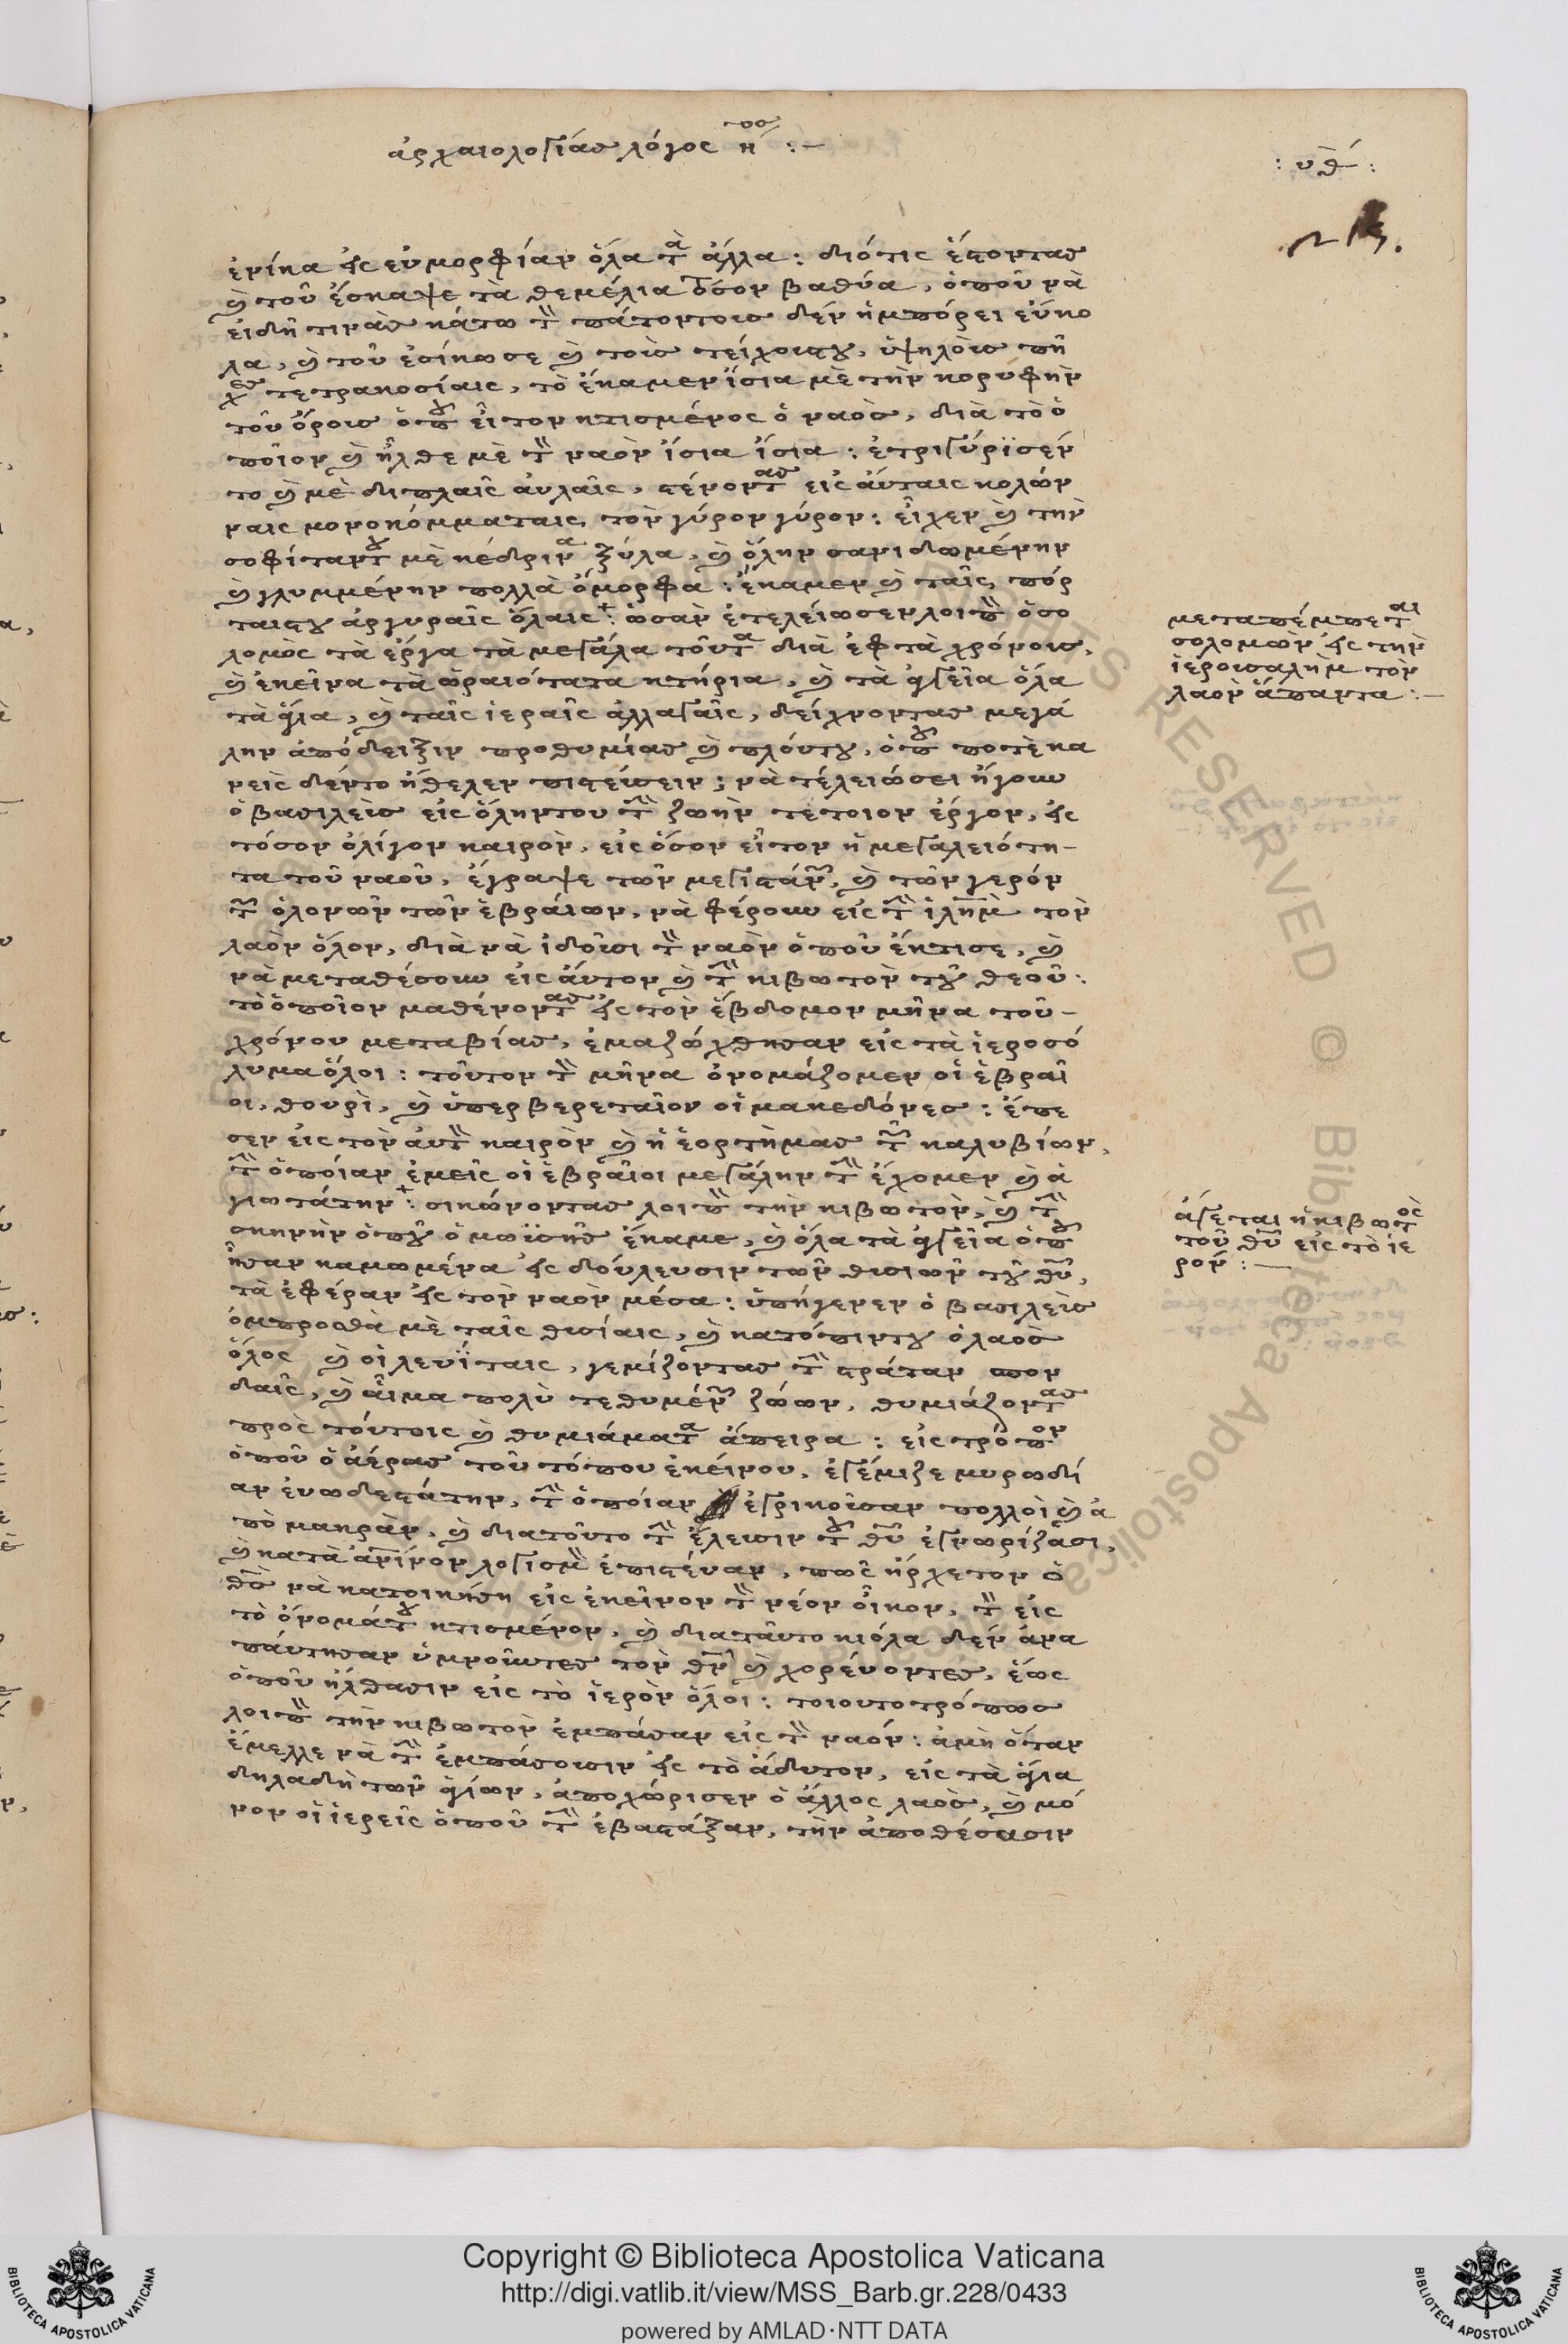 ἀρχαιολογίας λόγος η ος :—
: υθ :
ἐνίκα ἐς εὐμορφίαν ὅλα τὰ ἄλλα : διότις ἔστοντας
καὶ τοῦ ἔσκαψε τὰ θεμέλια τόσον βαθύα, ὁποῦ νὰ
εἰδῆ τινὰς κάτω τὸν πάτοντους δὲν ἠμπόρει εὔκο
λα, καὶ τοῦ ἐσίκωσε καὶ τοὺς τείχουςτου, ὑψηλοὺς πῆ
χες τετρακοσίαις, τὸ ἔκαμεν ἴσια μὲ τὴν κορυφὴν
τοῦ ὄρους ὁποῦ εἶτον κτισμένος ὁ ναὸς, διὰ τὸ ὁ
ποῖον καὶ ἦλθε μὲ τὸν ναὸν ἴσια ἴσια : ἐτριγύρϊσέν
το καὶ μὲ διπλαῖς αὐλαῖς, στένοντας εἰς αὐταῖς κολών
ναις μονοκόμματαις τὸν γύρον γύρον : εἶχεν καὶ τὴν
σοφίταντου μὲ κέδρινα ξύλα, καὶ ὅλην σανιδωμένην
καὶ γλυμμένην πολλὰ ὄμορφα : ἔκαμεν καὶ ταῖς πόρ
ταιςτου ἀργυραῖς ὅλαις + : ὡσὰν ἐτελείωσεν λοιπὸν ὁ σο
λομὸς τὰ ἔργα τὰ μεγάλα τοῦτα διὰ ἐφτὰ χρόνους,
καὶ ἐκεῖνα τὰ ὡραιότατα κτήρια, καὶ τὰ ἀγγεῖα ὅλα
τὰ ἅγια, καὶ ταῖς ἱεραῖς ἀλλαγαῖς, δείχνοντας μεγά
λην ἀπόδειξιν προθυμίας καὶ πλούτου, ὁποῦ ποτὲ κα
νεὶς δέντο ἤθελεν πιστεύσειν ; νὰ τελειώσει ἤγουν
ὁ βασιλεὺς εἰς ὅληντου τὴν ζωὴν τέτοιον ἔργον, ἐς
τόσον ὀλίγον καιρὸν, εἰς ὅσον εἶτον ἡ μεγαλειότη-
τα τοῦ ναοῦ, ἔγραψε τῶν μεγιστάνων, καὶ τῶν γερόν
των ὁλονῶν τῶν ἑβραίων, νὰ φέρουν εἰς τὴν ἱλημ τὸν
λαὸν ὅλον, διὰ νὰ ἰδοῦσι τὸν ναὸν ὁποῦ ἔκτισε, καὶ
νὰ μεταθέσουν εἰς αὐτον καὶ τὴν κιβωτὸν τοῦ θεοῦ :
τὸ ὁποῖον μαθένοντας ἐς τὸν ἕβδομον μῆνα τοῦ-
χρόνου μεταβίας, ἐμαζώχθησαν εἰς τὰ ἱεροσό
λυμα ὅλοι : τοῦτον τὸν μῆνα ὀνομάζομεν οἱ ἑβραῖ
οι, θουρὶ, καὶ ὑπερβερεταῖον οἱ μακεδόνες : ἔπε
σεν εἰς τὸν αὐτὸν καιρὸν καὶ ἡ ἑορτὴ μας τῶν καλυβίων,
τὴν ὁποίαν ἐμεῖς οἱ ἑβραῖοι μεγάλην τὴν ἔχομεν καὶ ἁ
γιωτάτην + : σικώνοντας λοιπὸν τὴν κιβωτὸν, καὶ τὴν
σκηνὴν ὁποῦ ὁ μωϊσῆς ἔκαμε, καὶ ὅλα τὰ ἀγγεῖα ὁποῦ
ἦσαν καμωμένα ἐς δούλευσιν τῶν θυσιῶν τοῦ θῦ,
τὰ ἐφέραν ἐς τὸν ναὸν μέσα : ὑπήγενεν ὁ βασιλεὺς
ὀμπροσθὰ μὲ ταῖς θυσίαις, καὶ κατόπιντου ὁ λαὸς
ὅλος καὶ οἱ λευΐταις, γεμίζοντας τὴν στράταν σπον
δαῖς, καὶ αἷμα πολὺ τεθυμένων ζώων, θυμιάζοντας
πρὸς τούτοις καὶ θυμιάματα ἄπειρα : εἰς τρόπον
ὁποῦ ὁ ἀέρας τοῦ τόπου ἐκείνου, ἐγέμιζε μυρωδί
αν εὐωδεστάτην, τὴν ὁποίαν ἐγρικοῦσαν πολλοὶ καὶ ἀ
πὸ μακρὰν, καὶ διατοῦτο τὴν ἔλευσιν τοῦ θῦ ἐγνωρίζασι,
καὶ κατὰ ἀνινον λογισμὸν ἐπιστέυαν, πῶς ἤρχετον ὁ
θς νὰ κατοικήση εἰς ἐκεῖνον τὸν νέον οἶκον, τὸν εἰς
τὸ ὄνομάτου κτισμένον, καὶ διαταῦτο κιόλα δὲν ἀνα
πάυτησαν ὑμνοῦντες τὸν θν καὶ χορέυοντες, ἕως
ὁποῦ ἤλθασιν εἰς τὸ ἱερὸν ὅλοι : τοιουτοτρόπως
λοιπὸν τὴν κιβωτὸν ἐμπάσαν εἰς τὸν ναόν : ἀμὴ ὅταν
ἔμελλε νὰ τὴν ἐμπάσουσιν ἐς τὸ ἄδυτον, εἰς τὰ ἅγια
δηλαδὴ τῶν ἁγίων, ἀποχώρισεν ὁ ἄλλος λαὸς, καὶ μό
νον οἱ ἱερεῖς ὁποῦ τὴν ἐβαστάξαν, τὴν ἀποθέσασιν
μεταπέμπεται
σολομὼν ἐς τὴν
ἱερουσαλὴμ τὸν
λαὸν ἅπαντα :—
ἄγεται ἡ κιβωτὸς
τοῦ θῦ εἰς τὸ ἱε
ρόν :—
Copyright © Biblioteca Apostolica Vaticana
http://digi.vatlib.it/view/MSS_Barb.gr.228/0433
powered by AMLAD·NTT DATA
BIBLIOTECA APOSTOLICA VATICANA
BIBLIOTECA APOSTOLICA VATICANA